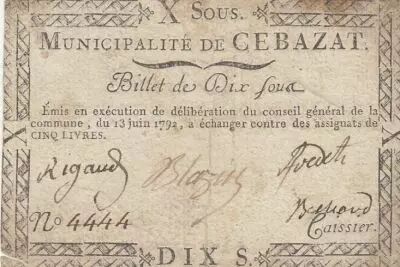 X Sous.
MUNICIPALITÉ DE CEBAZAT.
Billet de Dix sous
Émis en exécution de délibération du conseil général de la
commune, du 13 juin 1792, à échanger contre des assignats de
CINQ LIVRES.
Rigaud
No 4444
Caissier.
DIX S.